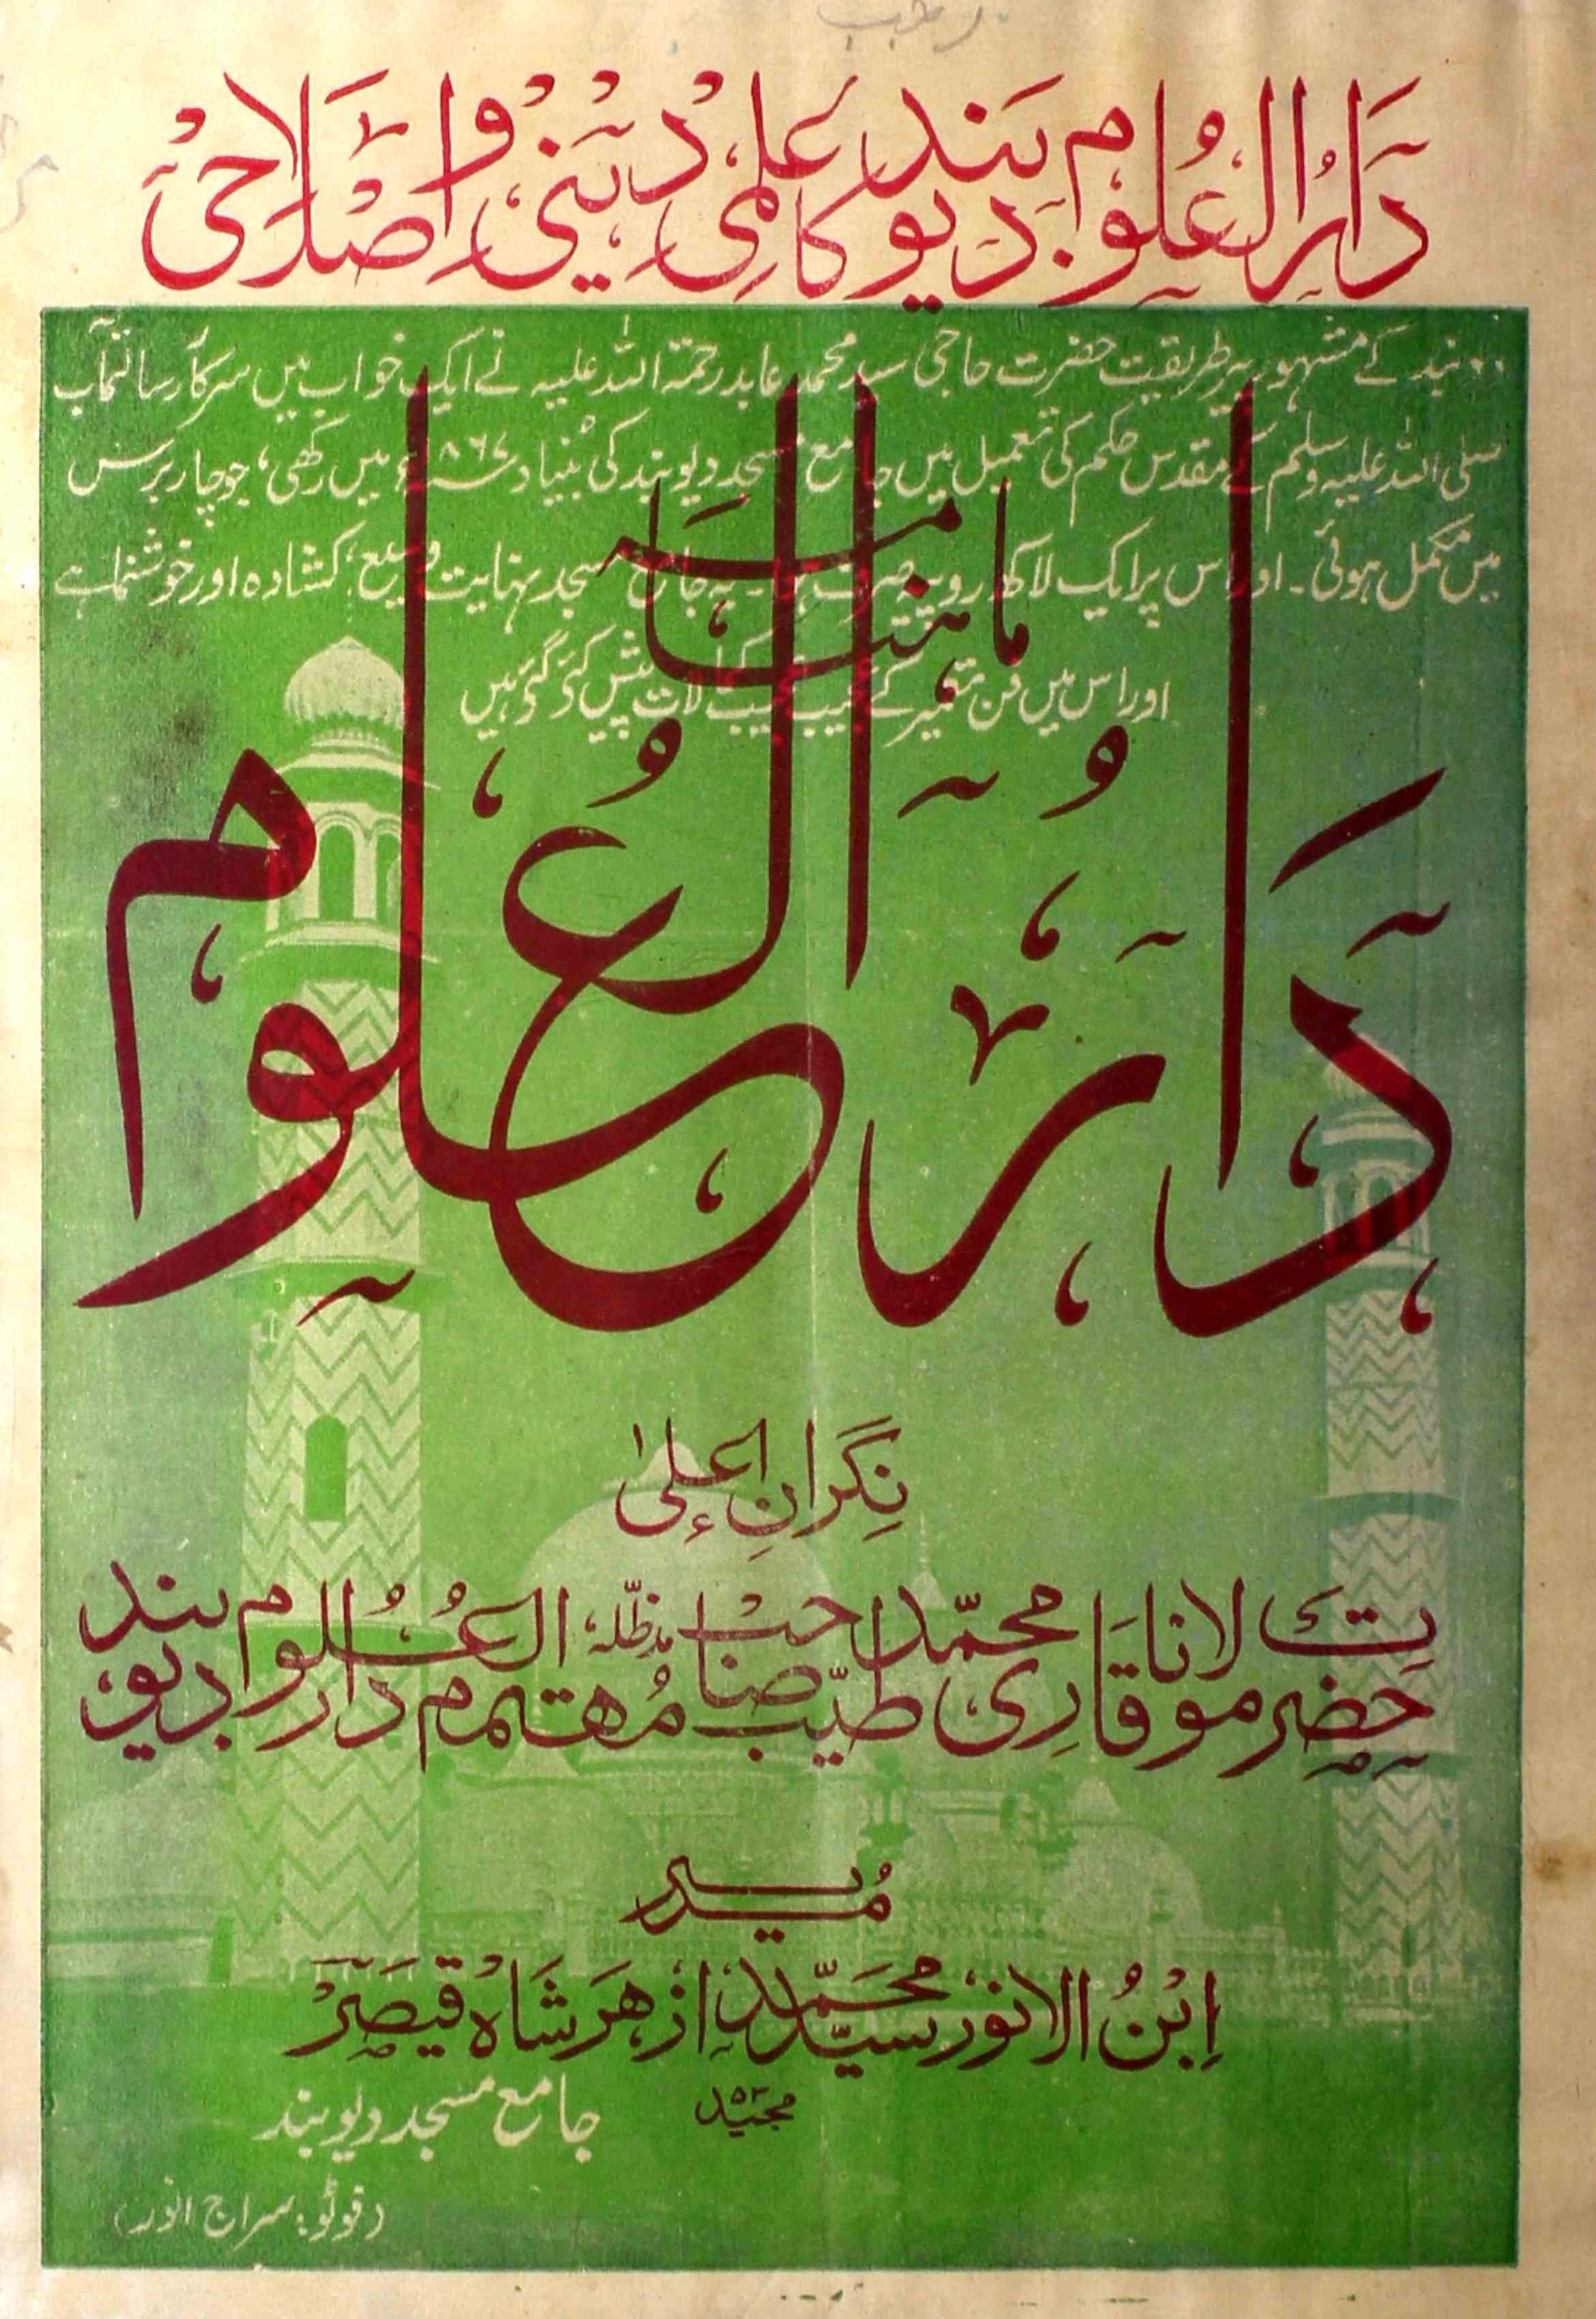 دَارُ العُلوم دیوبَند کا عِلمی دِینی و اَصلاحی
دیوبند کے مشہور پیر طریقت حضرت حاجی سید محمد عابد رحمتہ اللہ علیہ نے ایک خواب میں سرکار رسالتمآب
صلی اللہ علیہ وسلم کے مقدس حکم کی تعمیل میں جامع مسجد دیوبند کی بنیاد ۱۸۶۷ء میں رکھی، جو چار برس
میں مکمل ہوئی۔ اور اس پر ایک لاکھ روپیہ صرف ہوا۔ یہ جامع مسجد نہایت وسیع، کشادہ اور خوشنما ہے
اور اس میں فن تعمیر کے عجیب عجیب کمالات پیش کئے گئے ہیں
ماہنامہ
دَارُ العُلوم
نِگرانِ اعلیٰ
حضرت مولانا قاری محمّد طیّب صاحب مدظلّہ، مُهتمم دار العُلوم دیوبند
مُدیر
اِبْنُ الانور سیّد محَمّد اَزهَر شَاہ قیصَرْ
مجید ۵۳
جامع مسجد دیوبند
(فوٹو: سراج انور)